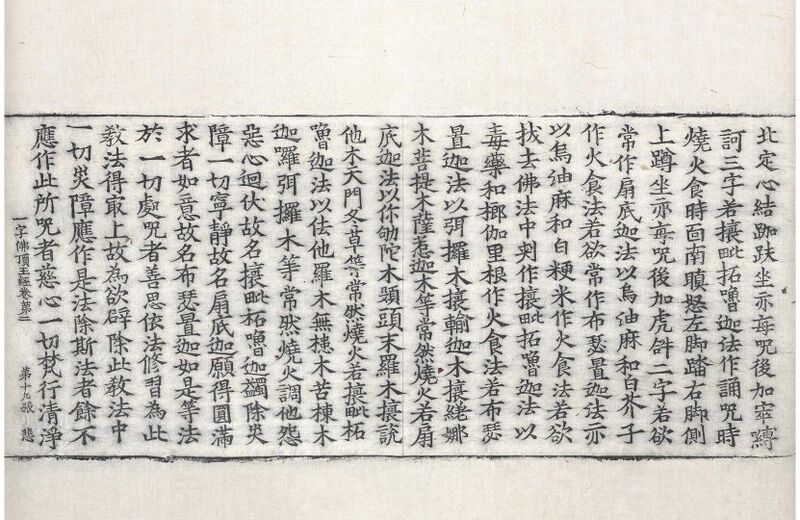 北定心結跏趺坐亦每咒後加窣縛
訶三字若攘毗拓嚕迦法作誦咒時
燒火食時面南瞋怒左脚踏右脚側
上蹲坐亦每咒後加虎𤙖二字若欲
常作扇底迦法以烏油麻和白芥子
作火食法若欲常作布瑟置迦法亦
以烏油麻和白粳米作火食法若欲
找去佛法中刺作攘毗拓嚕迦法以
毒藥和揶伽里根作火食法若布瑟
置迦法以弭攞木攘輸迦木攘綣娜
木菩提木薩惹迦木等常然燒火若扇
底迦法以你劬陀木頭頭末羅木攘說
他木天門冬草等常然燒火若攘毗拓
嚕迦法以佉他羅木無槵木苦楝木
迦羅弭攞木等常然燒火調他怨
惡心迴伏故名攘毗拓嚕迦蠲除災
障一切寧靜故名扇底迦願得圓滿
求者如意故名布瑟置迦如是等法
於一切處咒者善思依法修習為此
教法得取上故為欲辟除此教法中
一切災障應作是法除斯法者餘不
應作此所咒者慈心一切梵行清淨
一字佛頂王經卷第二 第十九張 悲